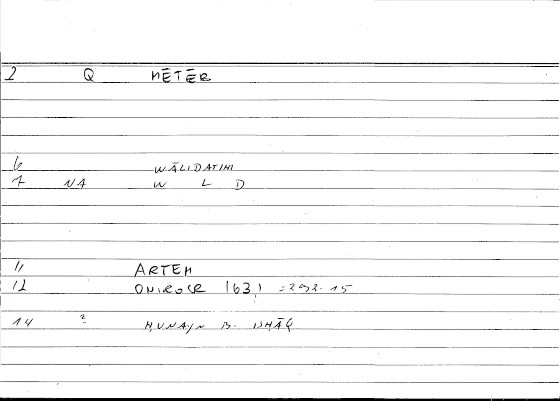 2 Q MĒTĒR
6 WĀLIDATIHI
7 NA W L D
11 ARTEM
12 ONIROCR 163, 292.15
14 2 ḤUNAYN B. ISḤĀQ